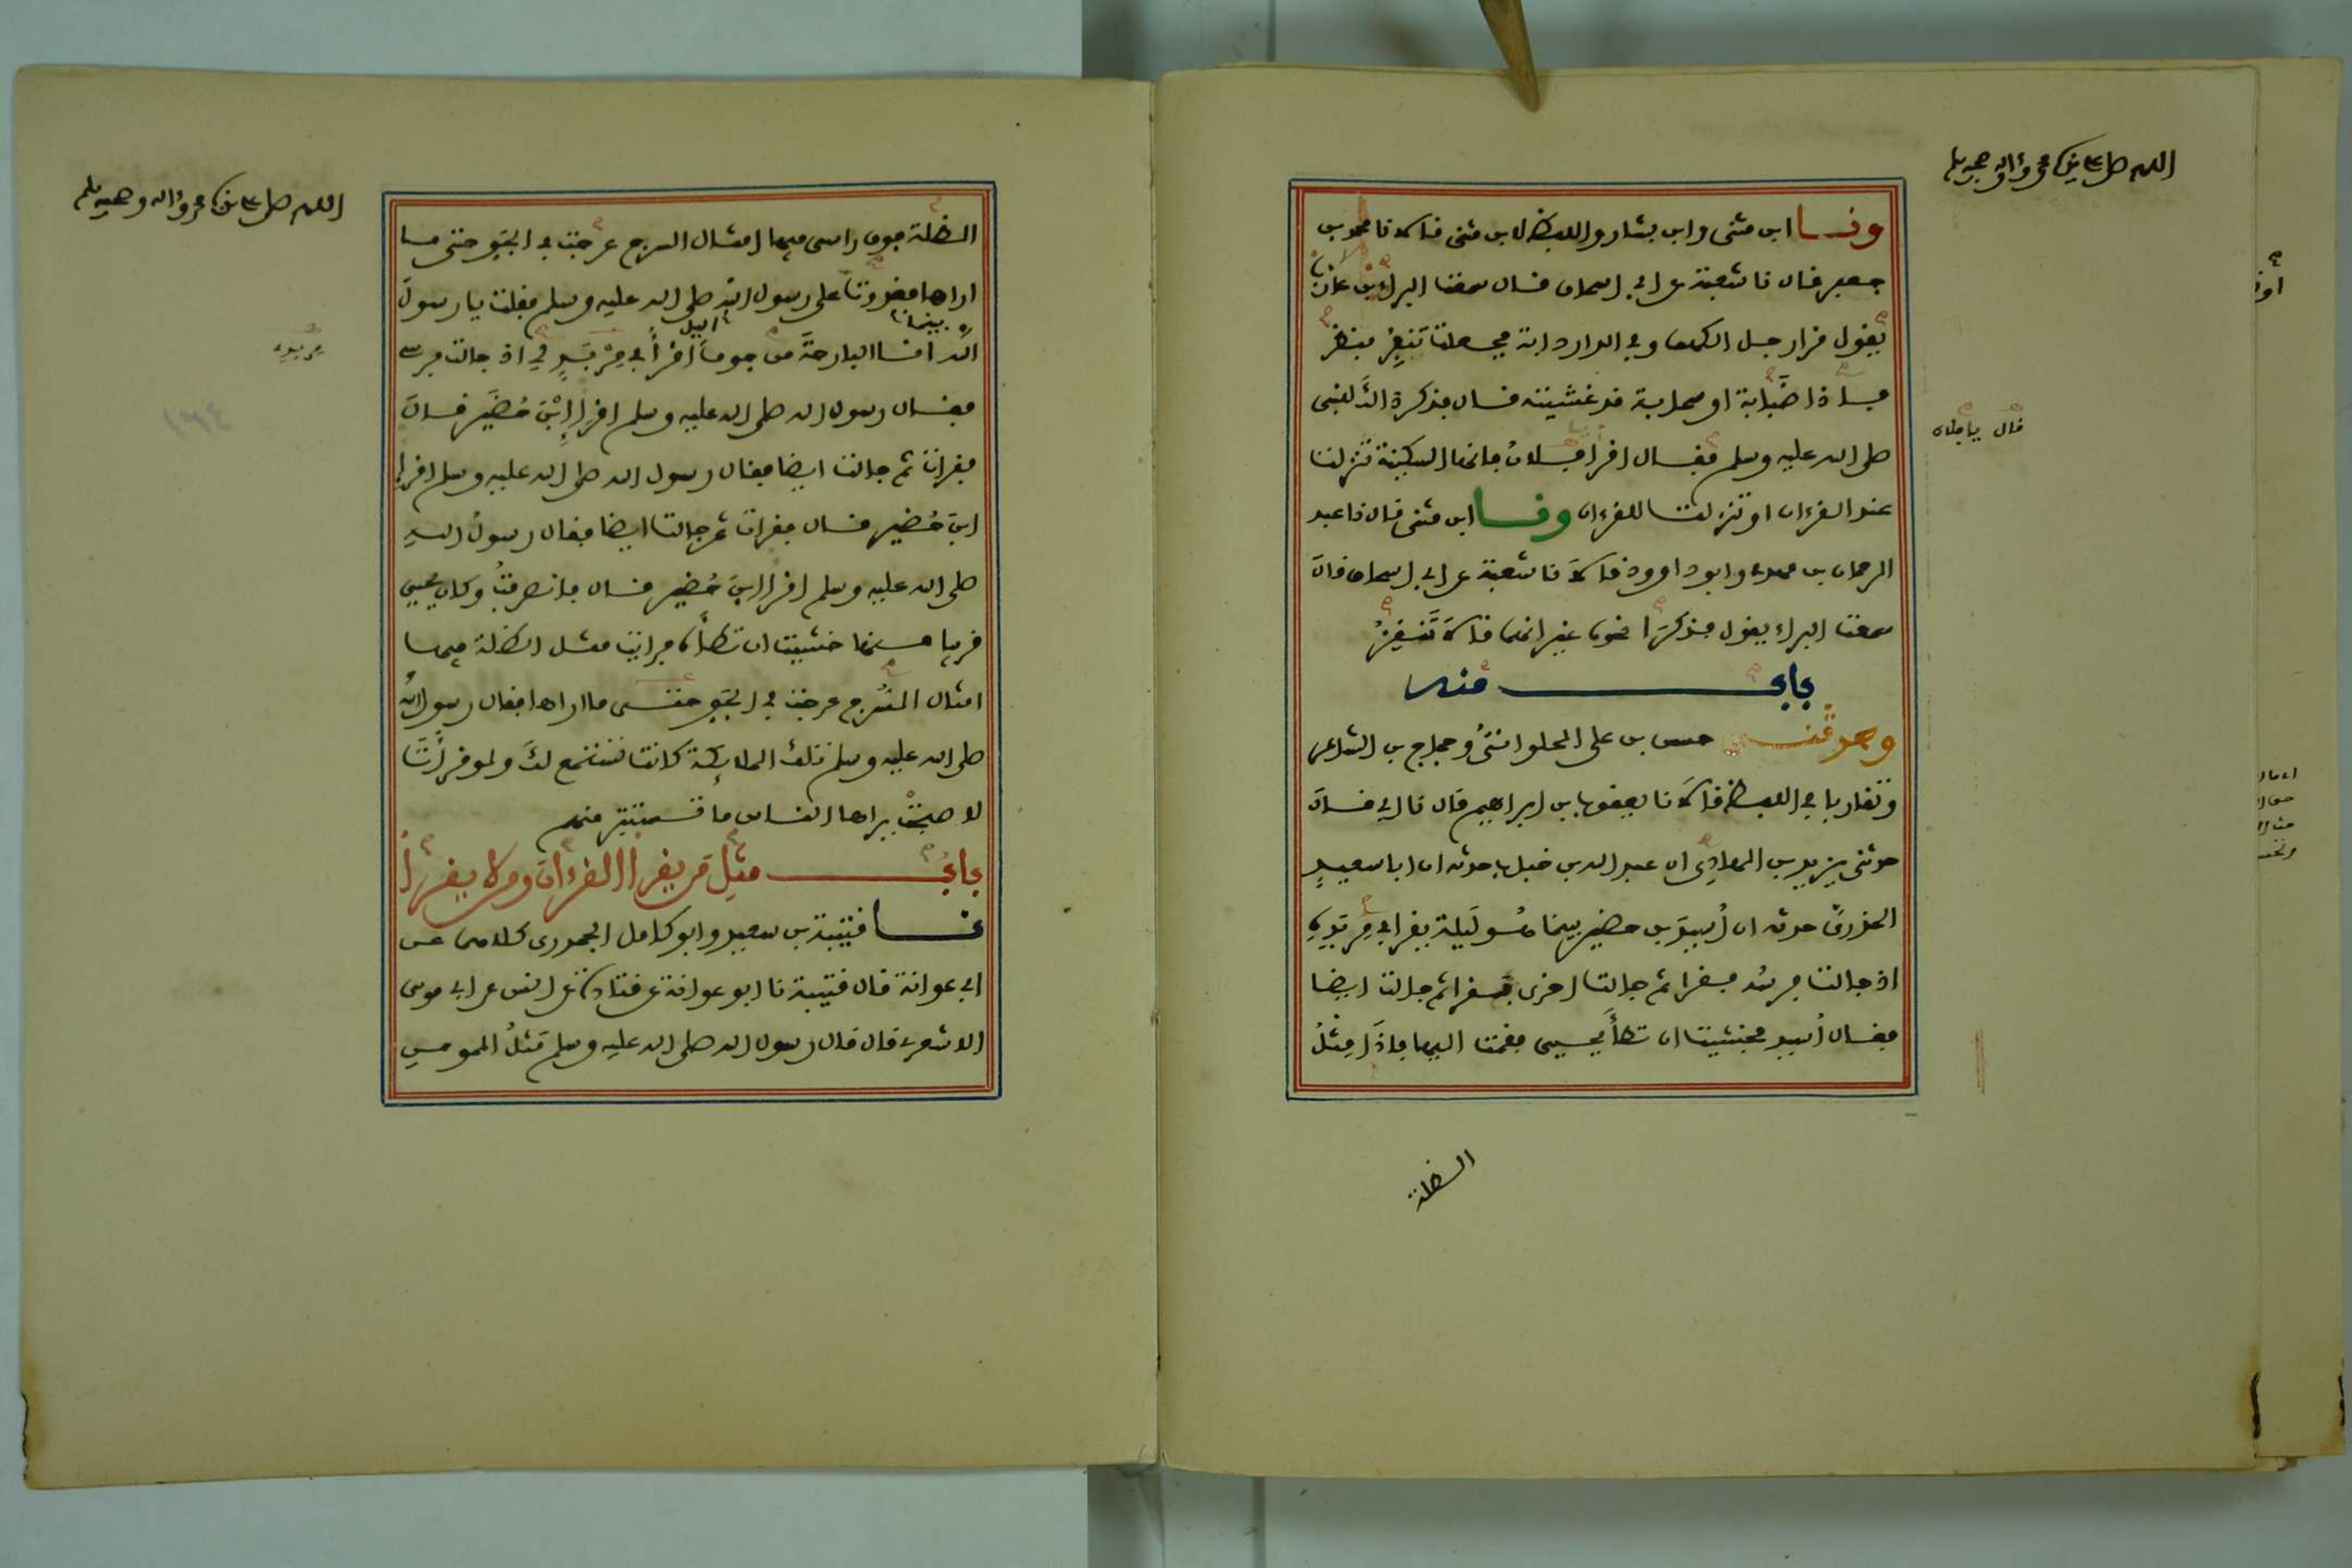 اللهم صل على سيدنا محمد وءاله وصحبه وسلم
ونا ابن مثنى وابن بشار واللفظ لابن مثنى قالا نا محمد بن
جعفر قال نا شعبة عن ابي اسحاق قال سمعت البراء بن عازب
يقول قرا رجل الكهف وفي الدار دابة فجعلت تنفر فنظر
فاذا ضبابة او سحابة قد غشيته قال فذكرة الك للنبى
صلى الله عليه وسلم فقال اقرا فلان فانها السكينة تنزلت
عند القرءان او تنزلت للقرءان ونا ابن مثنى قال نا عبد
الرحمان بن مهدي وابو داوود قالا نا شعبة عن ابي اسحاق قال
سمعت البراء يقول فذكرا نحوه غير انهما قالا تنقز
باب منه
وحدثني حسن بن على الحلواني وحجاج بن الشاعر
وتقاربا في اللفظ قالا نا يعقوب بن ابراهيم قال نا ابي قال
حدثنى يزيد بن الهادي ان عبد الله بن خباب حدثه ان ابا سعيد
الخدري حدثه ان اسيد بن حضير بينما هو ليلة يقرا في مربده
اذ جالت فرسه فقرا ثم جالت اخرى فقرا ثم جالت ايضا
فقال اسيد فخشيت ان تطأ يحيى فقمت اليها فاذا مثل
الظلة
قال يا فلان
اللهم صل على سيدنا محمد وءاله وصحبه وسلم
الظلة فوق راسى فيها امثال السرج عرجت في الجو حتى ما
اراها فغدوت على رسول الله صلى الله عليه وسلم فقلت يا رسول
الله بينما انا البارحة من جوف الليل اقرأ في مربد لي اذ جالت فرسي
فقال رسول الله صلى الله عليه وسلم اقرا ابن حضير قال
فقرات ثم جالت ايضا فقال رسول الله صلى الله عليه وسلم اقرا
ابن حضير قال فقرات ثم جالت ايضا فقال رسول الله
صلى الله عليه وسلم اقرا ابن حضير قال فانصرفت وكان يحيى
قريبا منها خشيت ان تطأه فرايت مثل الظلة فيها
امثال السرج عرجت في الجو حتى ما اراها فقال رسول الله
صلى الله عليه وسلم تلك الملايكة كانت تستمع لك ولو قرأت
لاصبحت يراها الناس ما تستتر منهم
باب مثل من يقرأ القرءان ومن لا يقرأ
نا قتيبة بن سعيد وابو كامل الجحدري كلاهما عن
ابي عوانة قال قتيبة نا ابو عوانة عن قتادة عن انس عن ابي موسى
الاشعري قال قال رسول الله صلى الله عليه وسلم مثل المومن
مربده